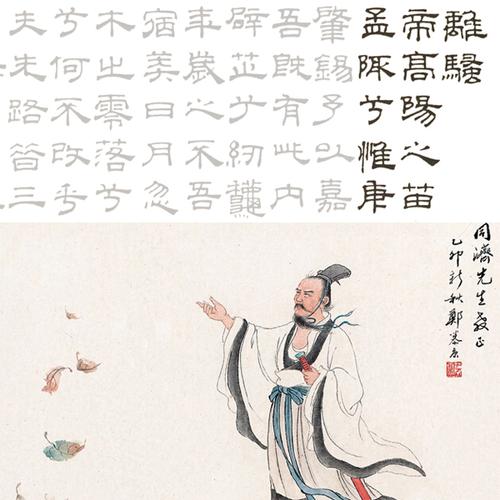 離騷
帝高陽之苗
孟陬兮惟庚
肇錫予以嘉
吾既有此内
辟芷兮紉龝
年歲之不吾
宿莽日月忽
木之零落兮
兮何不改乎
夫先路昔三
同濟先生教正
乙卯新秋鄭慕康